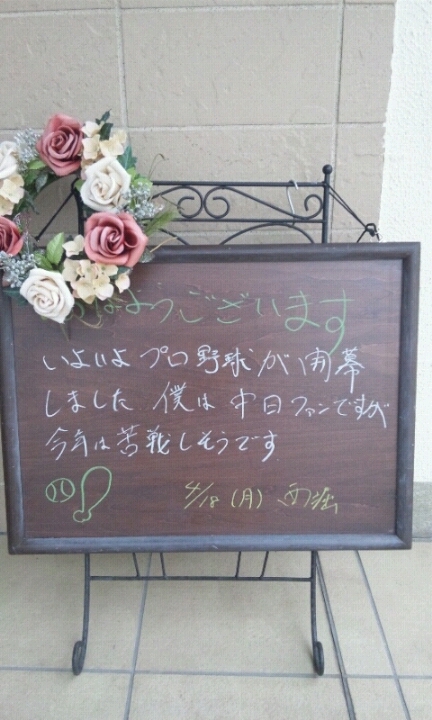 おはようございます
いよいよプロ野球が開幕
しました 僕は中日ファンですが
今年は苦戦しそうです
4/18(月) 西堀